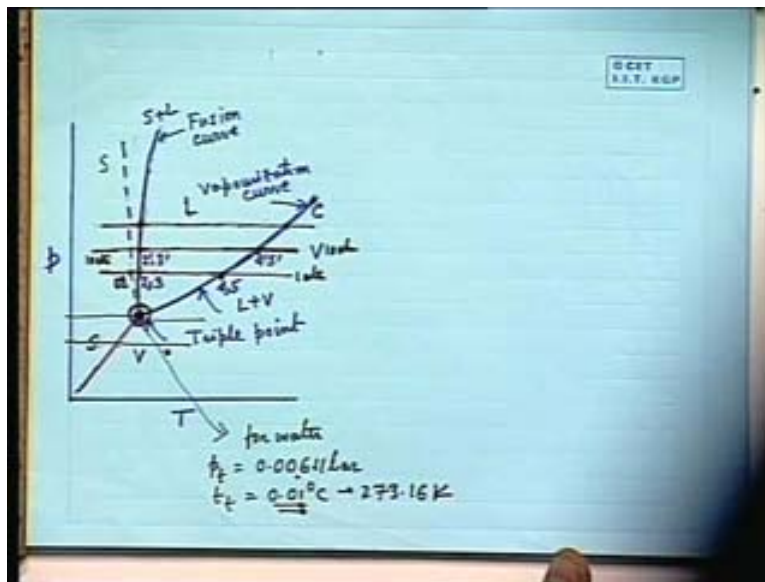 © CET
I.I.T. KGP
S+L
Fusion
curve
S
Vaporization
curve
L
C
P
V
2,3
4,5
L+V
Triple point
S
V
T
for water
Pt = 0.00611 bar
tt = 0.01°C → 273.16 K